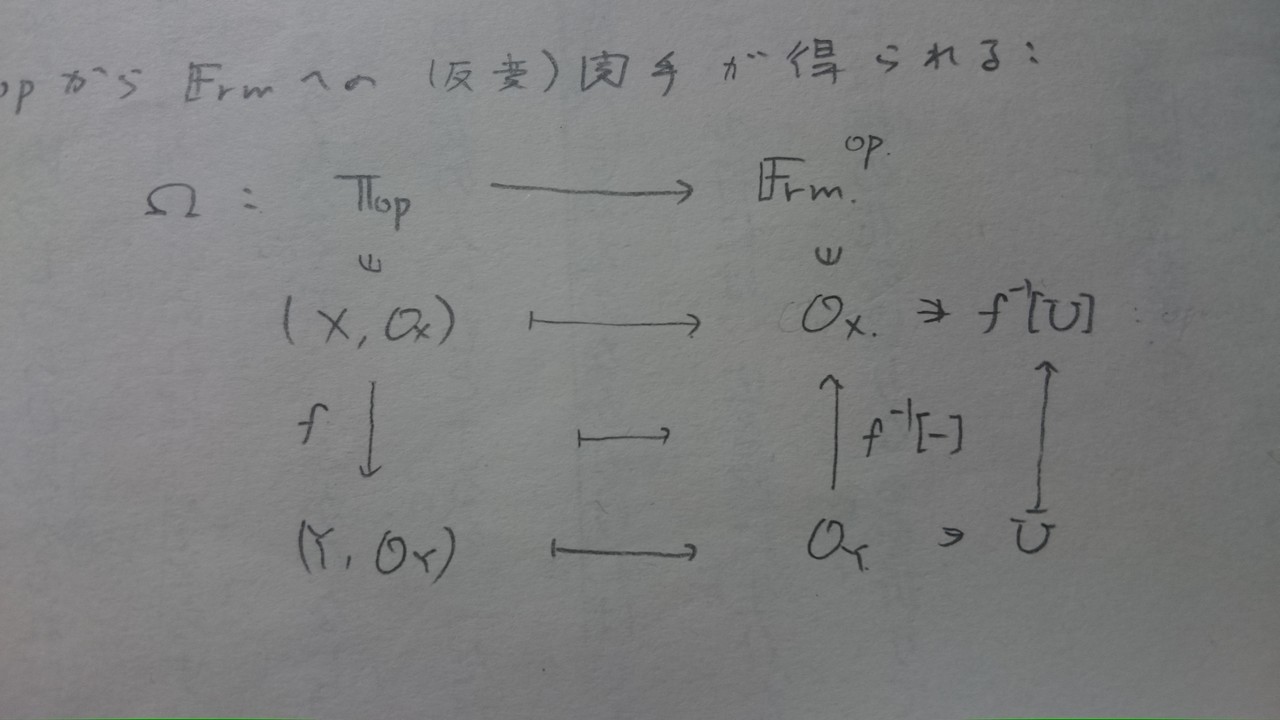 opから Frmへの (反変)関手が得られる:
Ω : Top → Frm.^op.
∈ ∈
(X, O_X) ↦ O_X. ∋ f^-1[U]
f ↓ ↦ ↑ f^-1[-] ↑
(Y, O_Y) ↦ O_Y. ∋ U